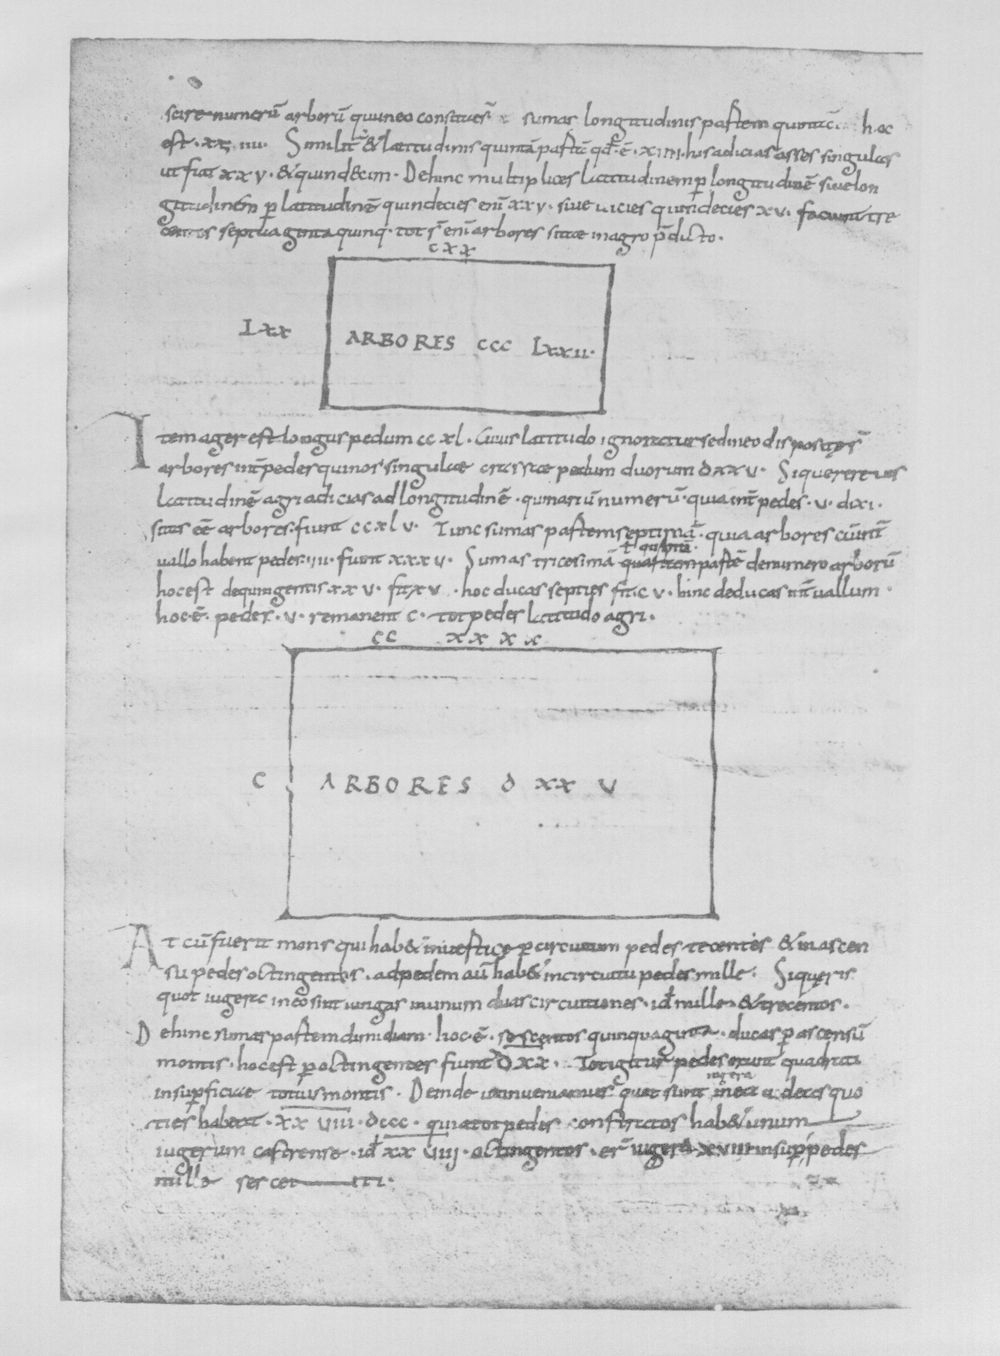 scire numerū arborū quineo constitues̄ sumas longitudinis partem quintā hoc
est · xx iiii · Similit̄ & latitudinis quintā partē qđ ē · xiiii · his adicias asses singulos
ut fiat xxv · & quindecim · Dehinc multiplices latitudinem p longitudinē sive lon
gitudinem p latitudinē quindecies eni xxv · sive vicies quindecies xv · faciunt tre
centos septuaginta quinq · tot s̄ eni arbores sitae in agro p̄dicto ·
cxx
lxx
ARBORES ccc lxxii ·
Item ager est longus pedum cc xl · Cuius latitudo ignoratur sed in eo dispositęs̄
arbores int̄ pedes quinos singulae crassitae pedum duorum dxxv · Si quereres
latitudinē agri adicias ad longitudinē · quinariū numerū · quia int̄ pedes · v · dixi ·
sitas eē arbores · fiunt cc xl v · Tunc sumas partem septimā · quia arbores cū int̄
vallo habent pedes · iii · fiunt xxxv · Sumas tricesimā quartam partē de numero arborū
t̄ quintā ·
hoc est de quingentis xx v · fit xv · hoc ducas septies fit c v · hinc deducas int̄vallum ·
hoc ē · pedes · v · remanent c · tot pedes latitudo agri ·
cc xx x x
c
ARBORES d xx v
At cū fuerit mons qui hab& in vertice p circuitum pedes trecentos & in ascen
su pedes octingentos · ad pedem aū hab& in circuitu pedes mille · Si queris
quot iugera in eo sint iungas in unum duas circuitiones · iđ mille & trecentos ·
Dehinc sumas partem dimidiam · hoc ē · sescentos quinquaginta · ducas p ascensū
montis · hoc est p octingentos fiunt dxx · Tot igitur pedes erunt quadrati
in supficiae totius montis · Deinde ut inveniamus quot sunt in ea
iugera
ties habent · xx viiii · dccc · quia tot pedes constrictos hab& unum
iugerum castrense · iđ xx viiii · octingentos · er̄ iugera xviii insup pedes
mille sescenti ·